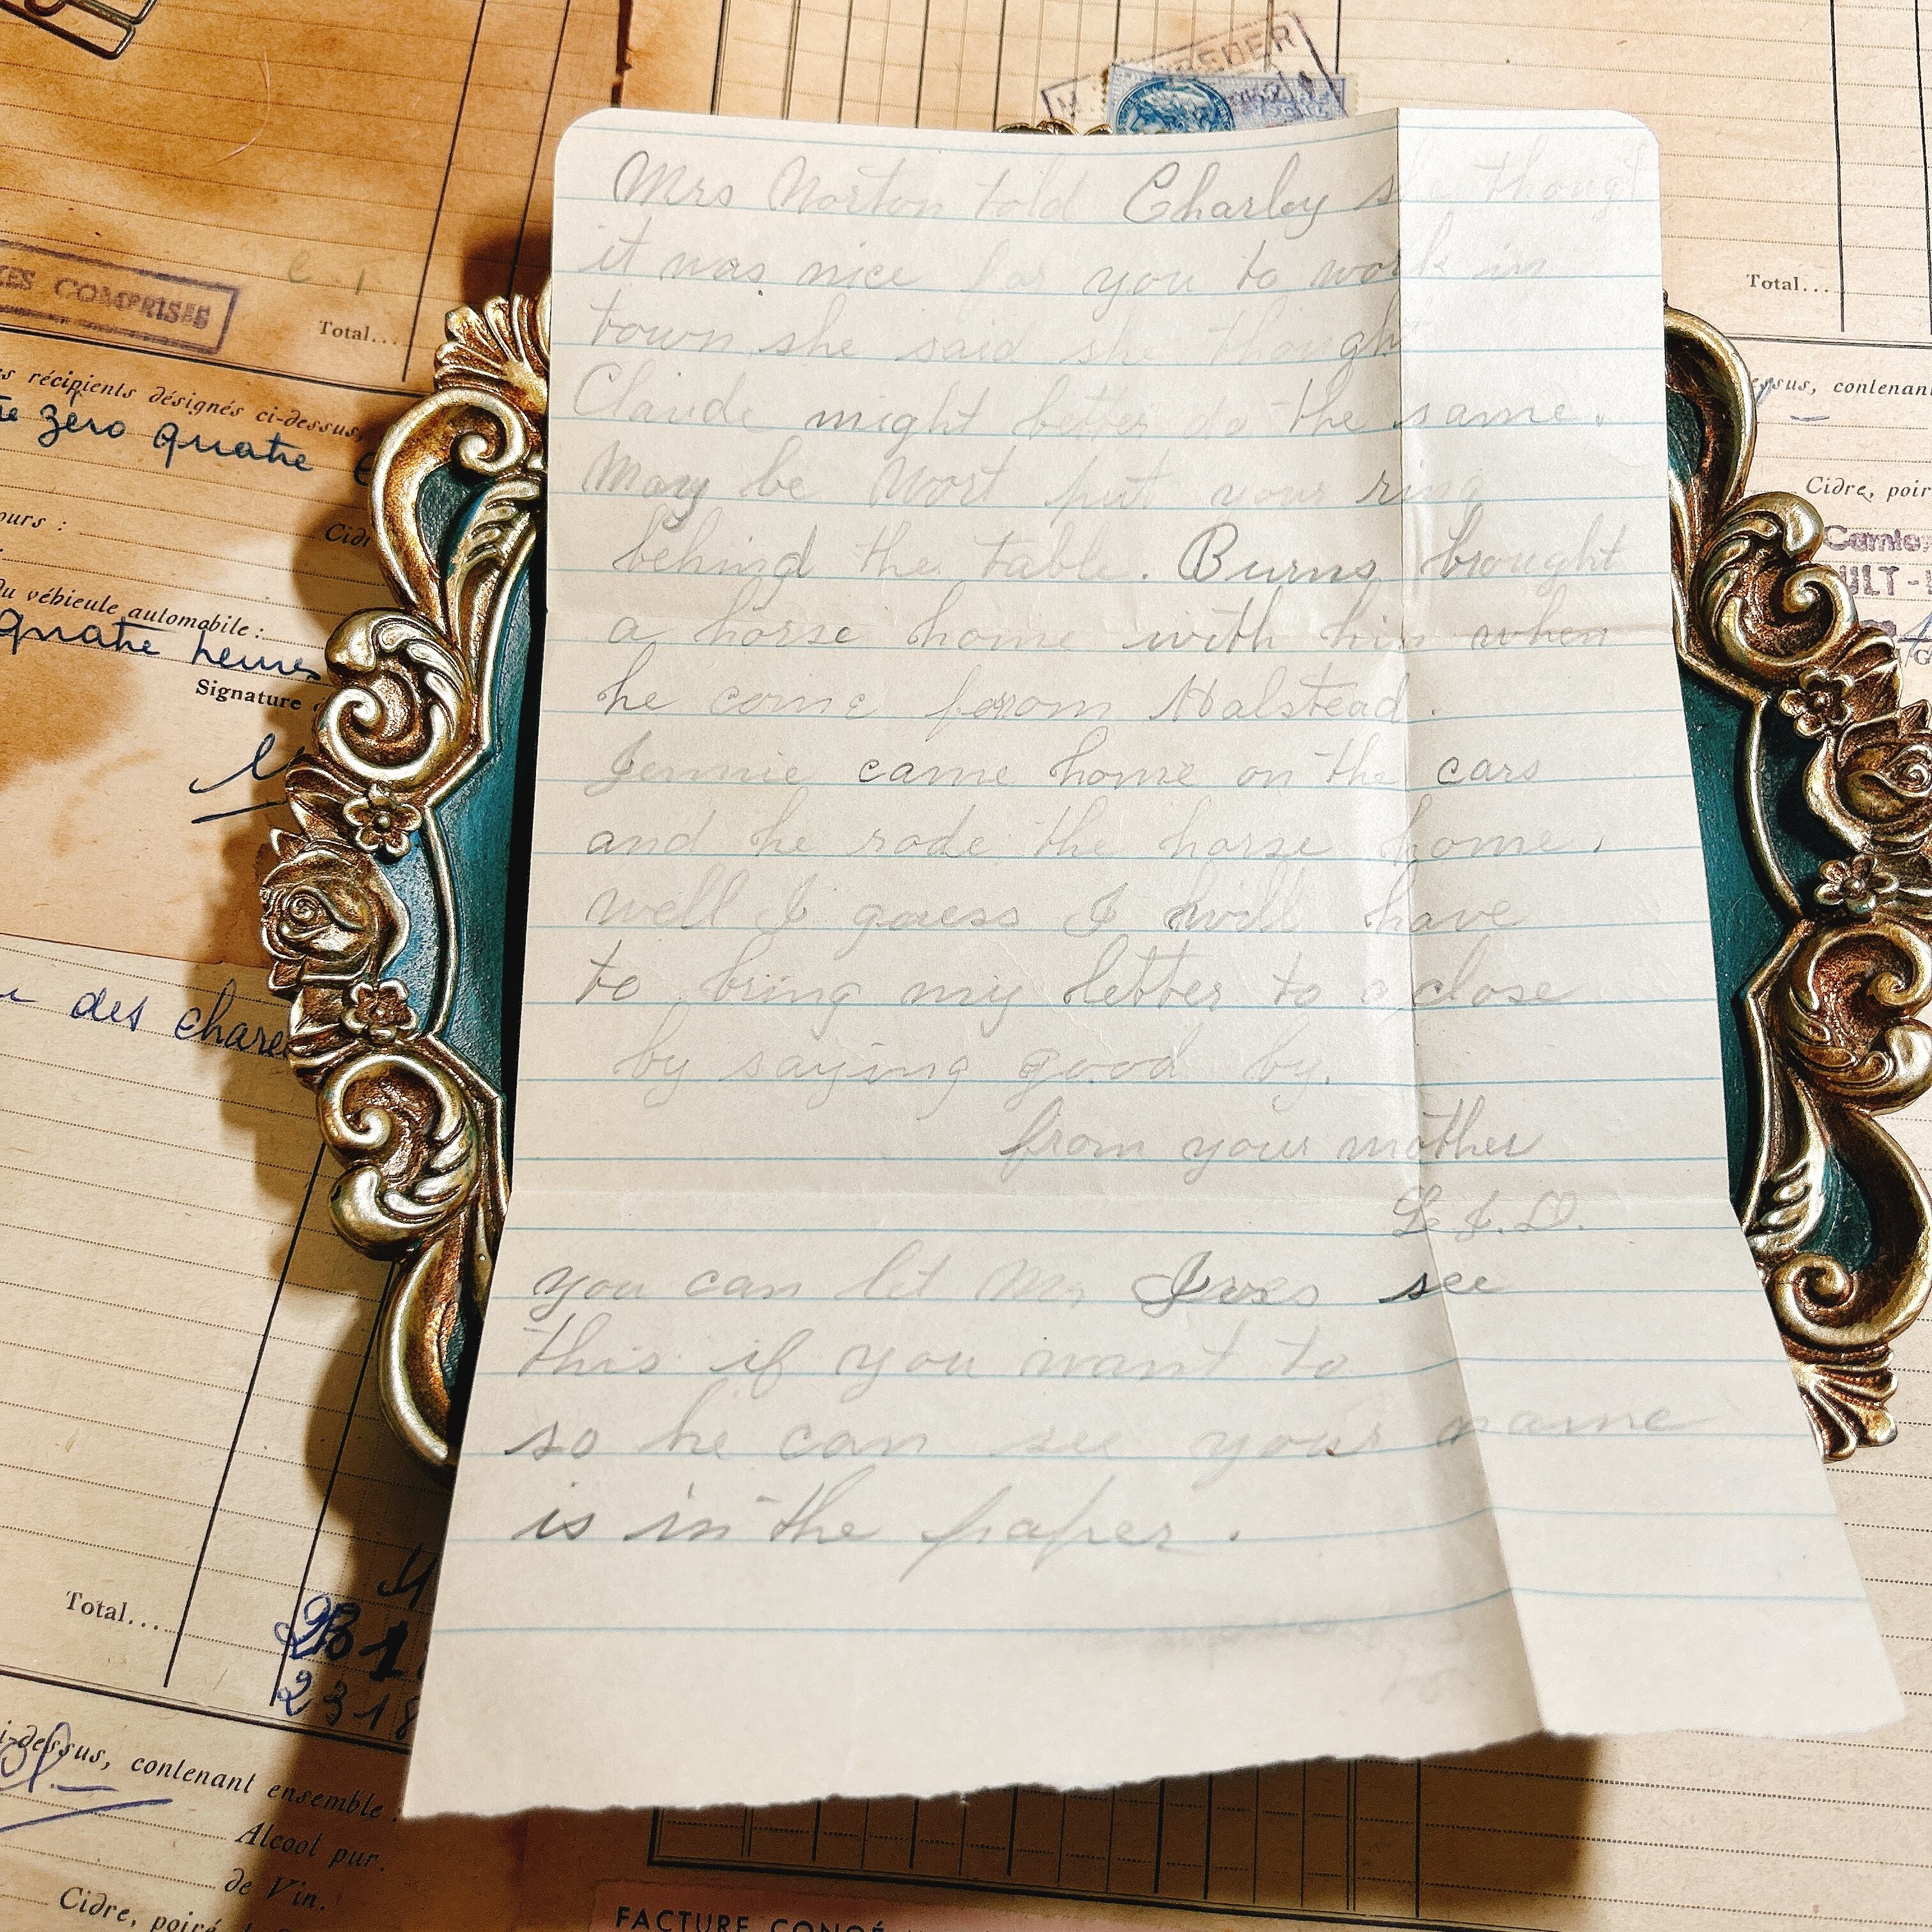 Mrs Norton told Charley she thought
it was nice for you to work in
town she said sh though
Claude might better do the same.
May be Mort put your ring
behind the table. Burns brought
a horse home with him when
he come from Halstead.
Jennie came home on the cars
and he rode the horse home.
well I guess I will have
to bring my letter to a close
by saying good by.
from your mother
L. J. D.
you can let Mr Ives see
this if you want to
so he can see your name
is in the paper.
COMPRISES
Total...
récipients désignés ci-dessus,
zéro quatre
ours :
du véhicule automobile :
quatre heures
Signature
des
Total....
2318
ci-dessus, contenant ensemble
Alcool pur.
de Vin.
Cidre, poiré
FACTURE CONGÉ
Total...
contenant
Cidre, poir